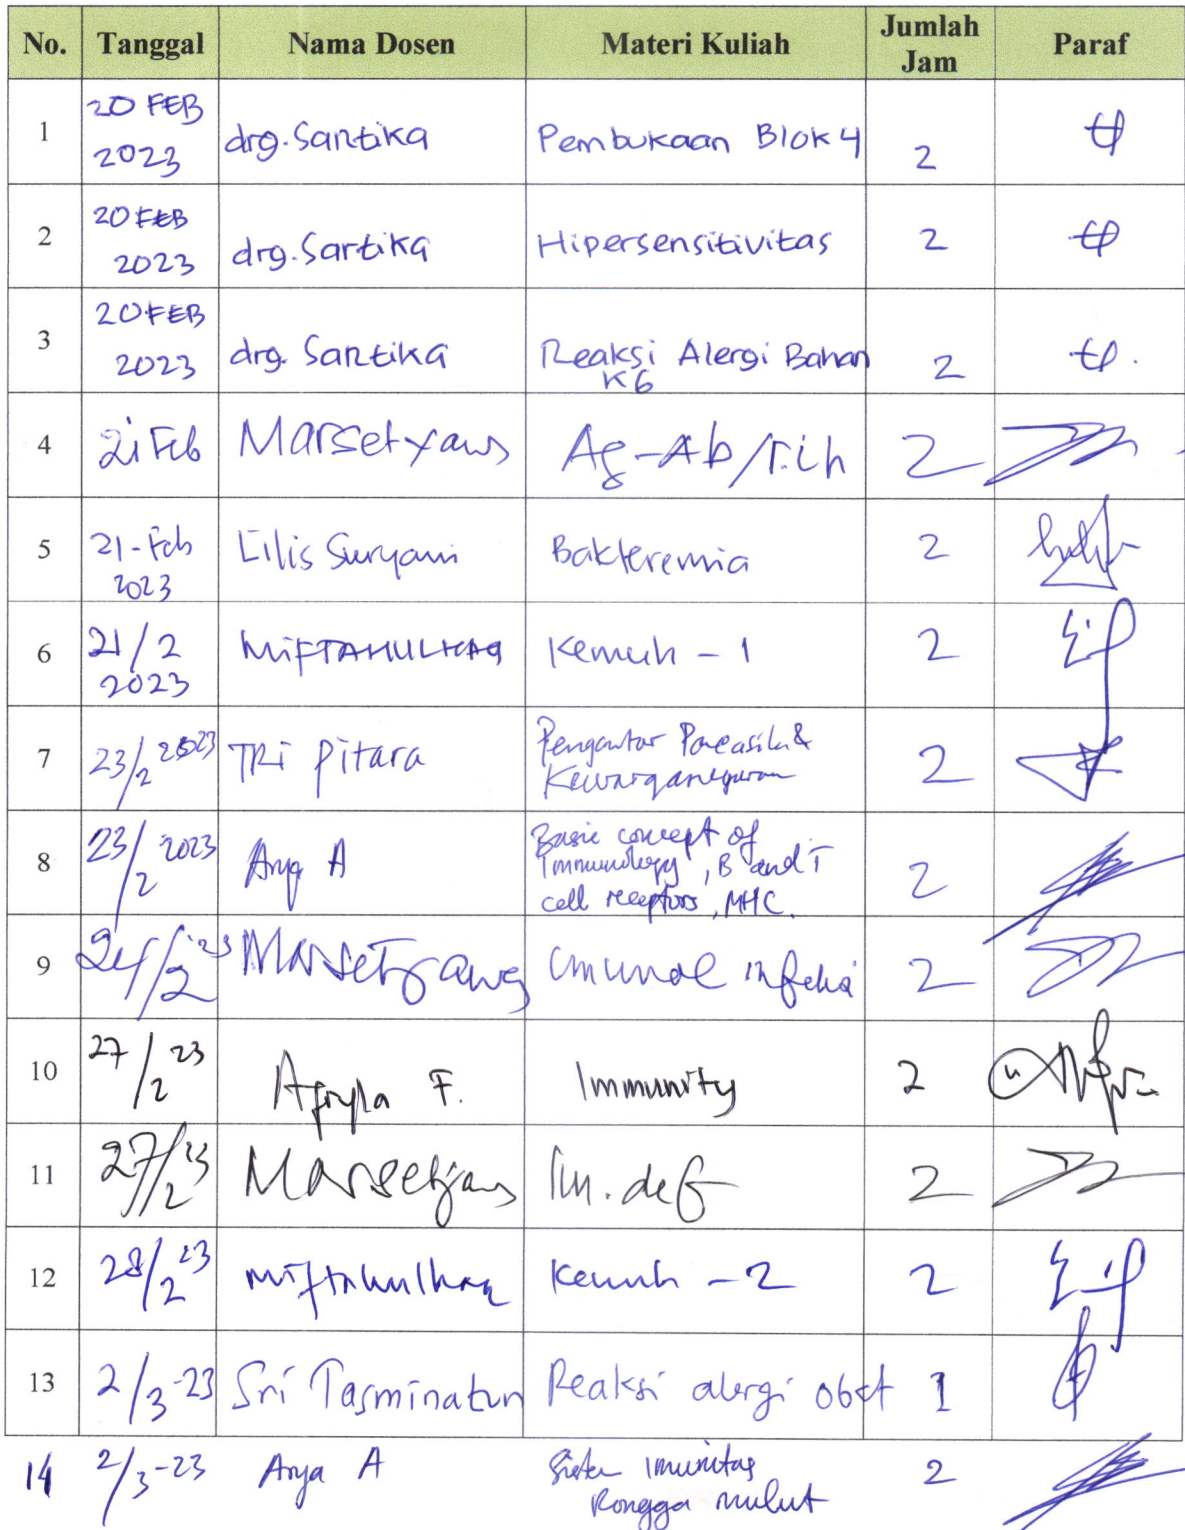 No. Tanggal Nama Dosen Materi Kuliah Jumlah Jam Paraf
1 20 FEB 2023 drg. Sartika Pembukaan Blok 4 2
2 20 FEB 2023 drg. Sartika Hipersensitivitas 2
3 20 FEB 2023 drg. Sartika Reaksi Alergi Bahan KG 2
4 21 Feb Marsetyawan Ag-Ab/ 2
5 21-Feb 2023 Lilis Suryani Bakteremia 2
6 21/2 2023 MIFTAHULHAQ Kemuh - 1 2
7 23/2 2023 TRi Pitara Pengantar Pancasila & Kewarganegaraan 2
8 23/2 2023 Arya A Basic concept of Immunology, B and T cell receptors, MHC. 2
9 24/2 '23 Marsetyawan Imunol infeksi 2
10 27/2 23 F. Immunity 2
11 27/2 '23 Marsetyawan Im. def 2
12 28/2 '23 Miftahulhaq Kemuh - 2 2
13 2/3-23 Sri Tasminatun Reaksi alergi obat 1
14 2/3-23 Arya A Sistem imunitas Rongga mulut 2